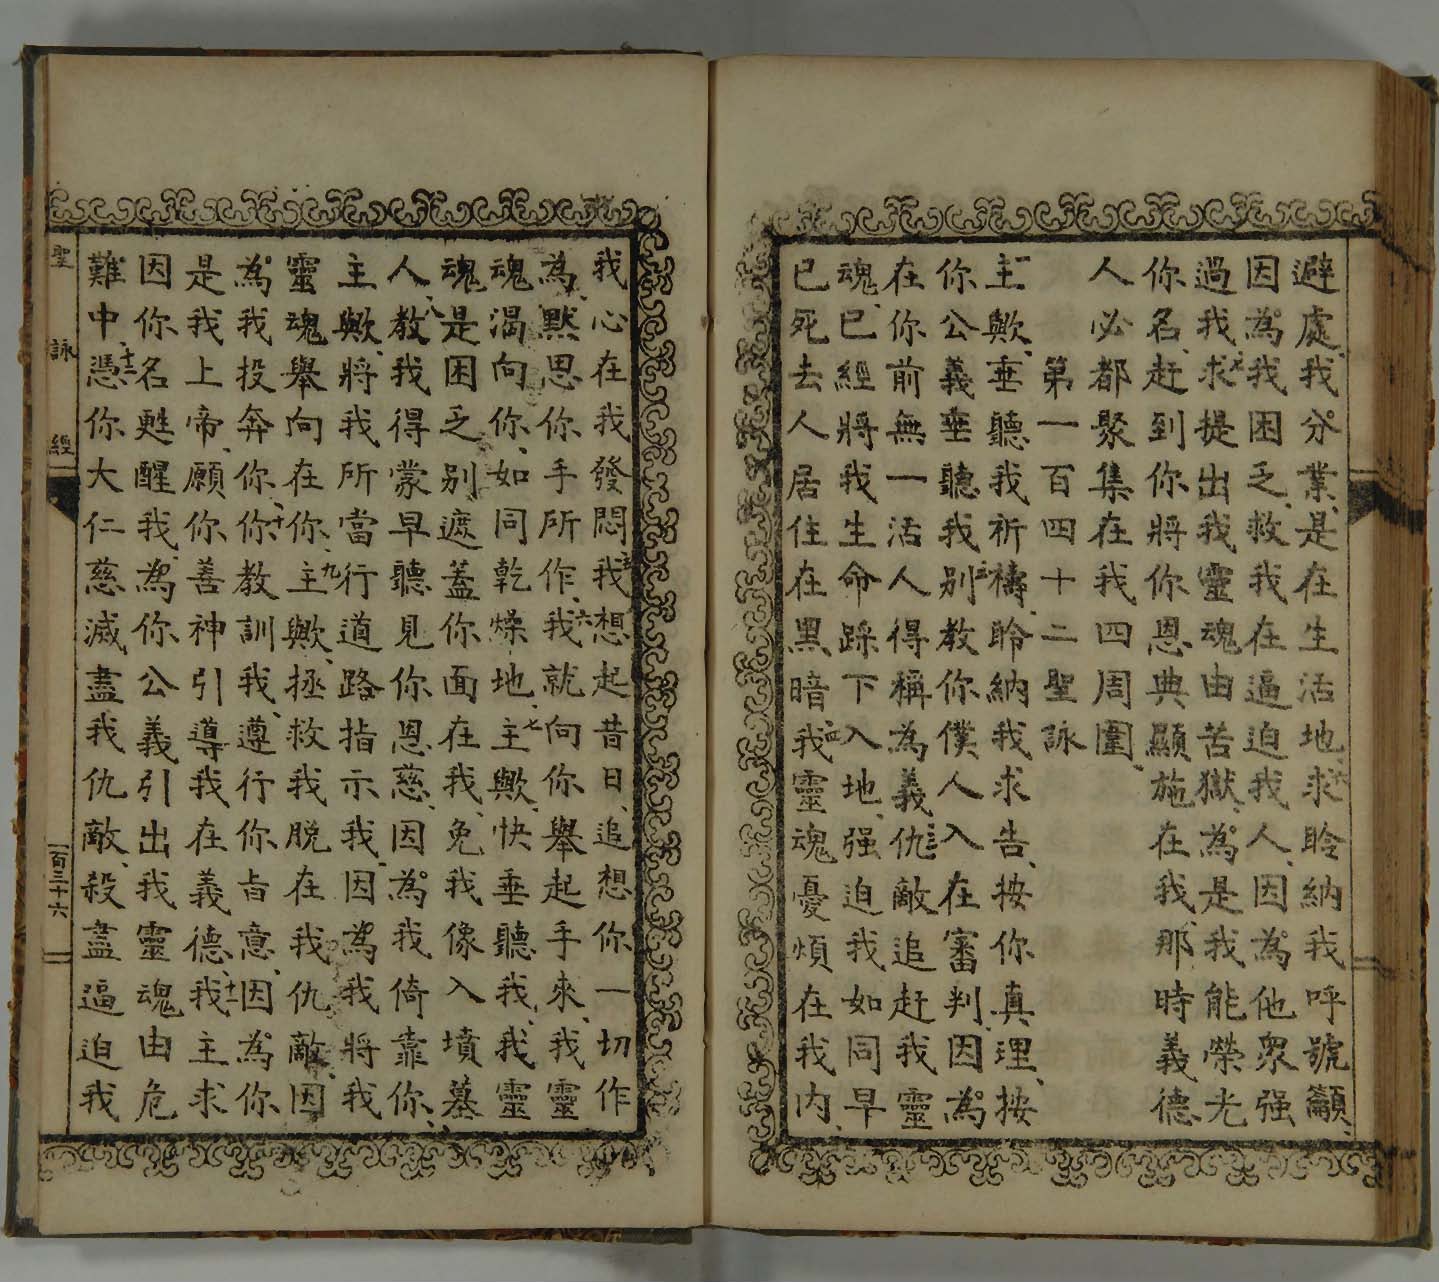 避處、我分業、是在生活地、六求聆納我呼號籲、
因為我困乏、救我在逼迫我人、因為他衆强
過我、七求提出我靈魂由苦獄、為是我能榮光
你名、赶到你將你恩典顯施在我、那時義德
人必都聚集在我四周圍、
第一百四十二聖詠
一主歟、垂聽我祈禱、聆納我求告、按你真理、按
你公義垂聽我、二别教你僕人入在審判、因為
在你前無一活人得稱為義、三仇敵追赶我靈
魂、已經將我生命踩下入地、强迫我如同早
已死去人居住在黑暗、四我靈魂憂煩在我内、
我心在我發悶、五我想起昔日、追想你一切作
為、默思你手所作、六我就向你舉起手來、我靈
魂渴向你、如同乾燥地、七主歟、快垂聽我、我靈
魂是困乏、别遮蓋你面在我、免我像入墳墓
人、八教我得蒙早聽見你恩慈、因為我倚靠你、
主歟、將我所當行道路指示我、因為我將我
靈魂舉向在你、九主歟、拯救我脫在我仇敵、因
為我投奔你、十你教訓我、遵行你旨意、因為你
是我上帝、願你善神引導我在義德、十一我主求
因你名甦醒我、為你公義引出我靈魂由危
難中、十二憑你大仁慈滅盡我仇敵、殺盡逼迫我
聖詠經
一百三十六